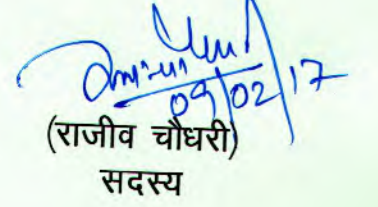 09/02/17
(राजीव चौधरी)
सदस्य